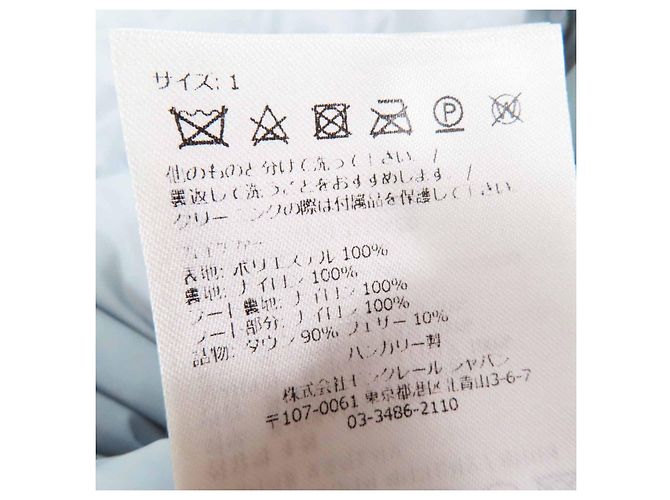 サイズ: 1
P W
他のものと分けて洗って下さい。/
裏返して洗うことをおすすめします。/
クリーニングの際は付属品を保護して下さい。
表地: ポリエステル 100%
裏地: ナイロン 100%
フード裏地: ナイロン 100%
フード部分: ナイロン 100%
詰物: ダウン 90% フェザー 10%
ハンガリー製
株式会社モンクレール ジャパン
〒107-0061 東京都港区北青山3-6-7
03-3486-2110